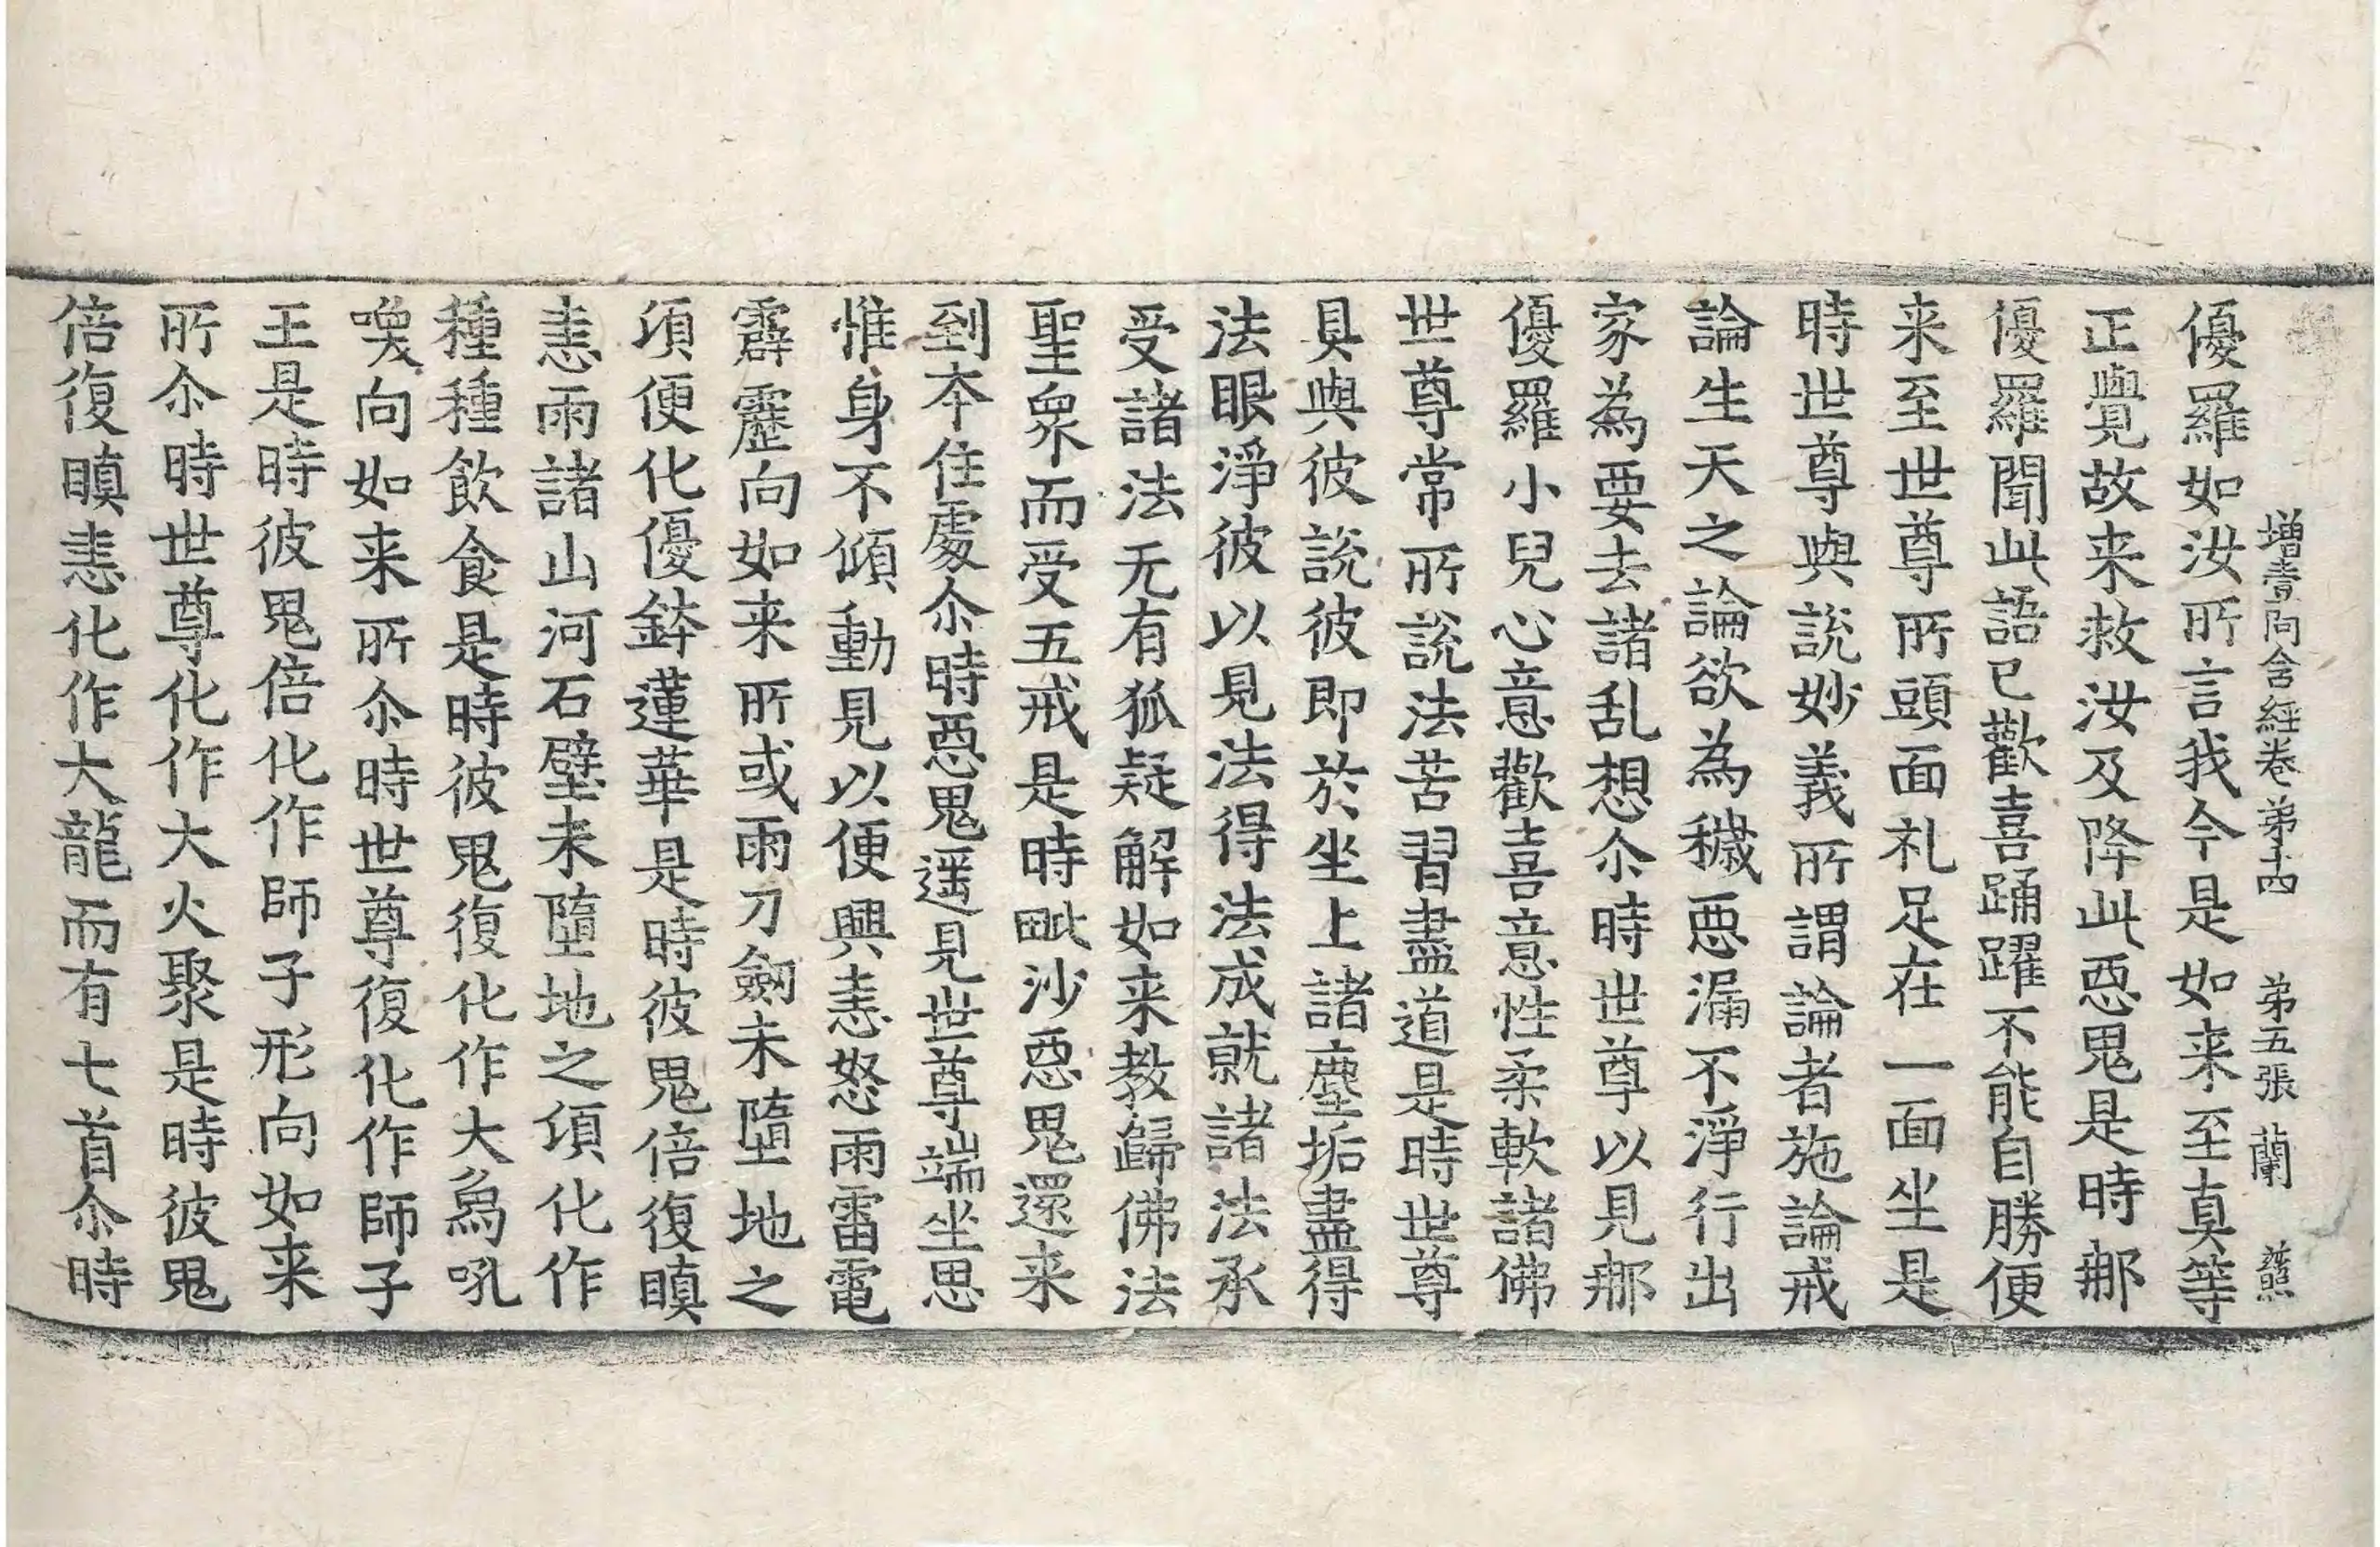 增壹阿含經卷第十四 第五張 蘭
優羅如汝所言我今是如来至真等
正覺故来救汝及降此惡鬼是時那
優羅聞此語已歡喜踊躍不能自勝便
来至世尊所頭面礼足在一面坐是
時世尊與說妙義所謂論者施論戒
論生天之論欲為穢惡漏不淨行出
家為要去諸乱想尒時世尊以見那
優羅小兒心意歡喜意性柔軟諸佛
世尊常所說法苦習盡道是時世尊
具與彼說彼即於坐上諸塵垢盡得
法眼淨彼以見法得法成就諸法承
受諸法无有狐疑解如来教歸佛法
聖衆而受五戒是時毗沙惡鬼還来
到本住處尒時惡鬼遥見世尊端坐思
惟身不傾動見以便興恚怒雨雷電
霹靂向如来所或雨刀劒未墮地之
頃便化優鉢蓮華是時彼鬼倍復瞋
恚雨諸山河石壁未墮地之頃化作
種種飲食是時彼鬼復化作大鳥吼
喚向如来所尒時世尊復化作師子
王是時彼鬼倍化作師子形向如来
所尒時世尊化作大火聚是時彼鬼
倍復瞋恚化作大龍而有七首尒時